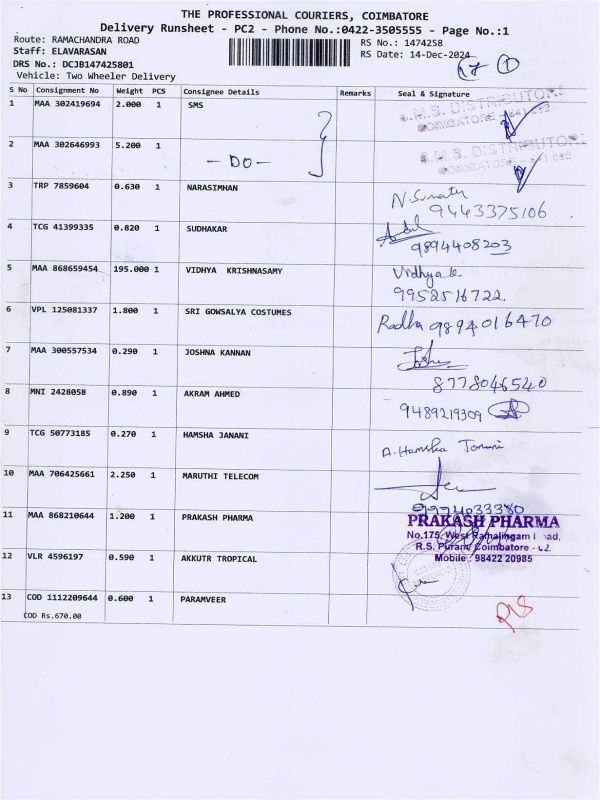 THE PROFESSIONAL COURIERS, COIMBATORE
Delivery Runsheet - PC2 - Phone No.:0422-3505555 - Page No.:1
Route: RAMACHANDRA ROAD
RS No.: 1474258
Staff: ELAVARASAN
RS Date: 14-Dec-2024
DRS No.: DCJB147425801
Vehicle: Two Wheeler Delivery
1
S No Consignment No Weight PCS Consignee Details Remarks Seal & Signature
1 MAA 302419694 2.000 1 SMS
S.M.S. DISTRIBUTORS
COIMBATORE - 641 002
2 MAA 302646993 5.200 1 - DO -
S.M.S. DISTRIBUTORS
COIMBATORE - 641 002
3 TRP 7859604 0.630 1 NARASIMHAN
9443375106
4 TCG 41399335 0.820 1 SUDHAKAR
9894408203
5 MAA 868659454 195.000 1 VIDHYA KRISHNASAMY Vidhya k
9952516722
6 VPL 125081337 1.800 1 SRI GOWSALYA COSTUMES Radha 9894016470
7 MAA 300557534 0.290 1 JOSHNA KANNAN
8778046540
8 MNI 2428058 0.890 1 AKRAM AHMED 9489219309
9 TCG 50773185 0.270 1 HAMSHA JANANI A. Hamsha Janani
10 MAA 706425661 2.250 1 MARUTHI TELECOM
9994033380
11 MAA 868210644 1.200 1 PRAKASH PHARMA PRAKASH PHARMA
No.175, West Ramalingam
R.S. Puram, Coimbatore - 2.
Mobile : 98422 20985
12 VLR 4596197 0.590 1 AKKUTR TROPICAL
13 COD 1112209644 0.600 1 PARAMVEER
COD Rs.670.00